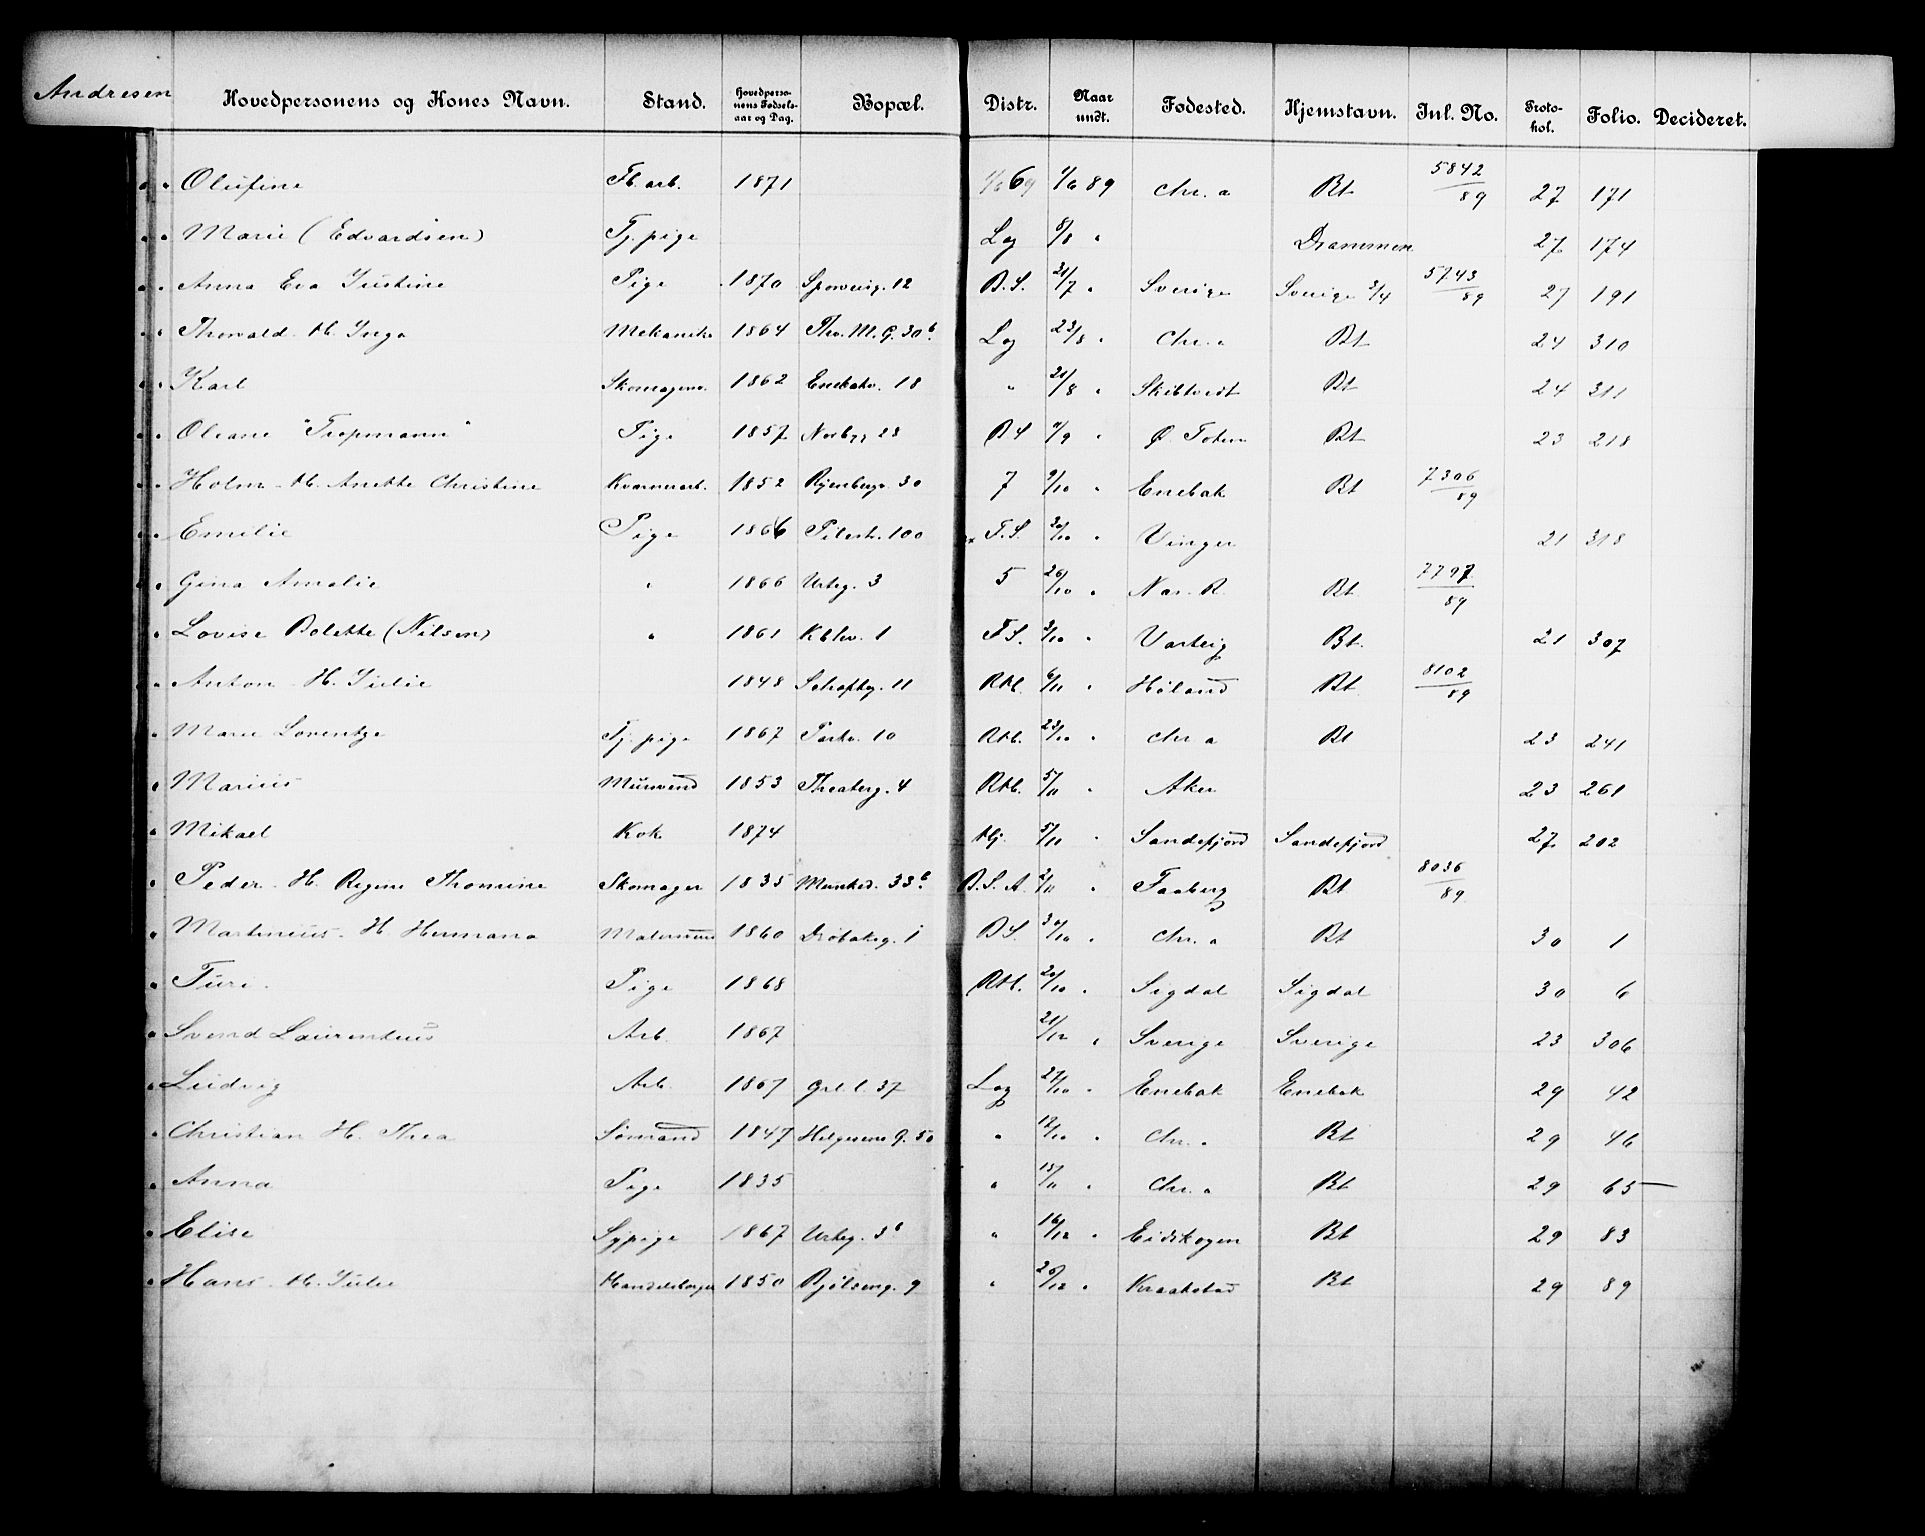 Andresen
Hovedpersonens og Kones Navn. Stand. Hovedpersonens Fødselsaar og Dag. Bopæl. Distr. Naar undt. Fødested. Hjemstavn. Inl. No. Protokol. Folio. Decideret.
" Olufine Fb. arb. 1871 69 1/6 89 Chr. a Bt 5842/89 27 171
" Marie (Edvardsen) Tj. pige Log 8/8 " Drammen 27 174
" Anna Eva Justine Pige 1870 12 B.S. 21/7 " Sverige Sverige 3/4 5743/89 27 191
" Thorvald H. Inga Mekanik 1864 Thv. M. G. 30b Log 23/8 " Chr. a Bt 24 310
" Karl Skomagerv. 1862 Enebakv. 18 " 21/8 " Skibtvedt Bt 24 311
" Oleane "Tropmann" Pige 1857 Norbyg 28 BS 11/9 " Ø. Toten Bt 23 218
" Holm H. Anette Christine Kværnarb. 1852 Ryenbergv. 30 7 9/10 " Enebak Bt 7306/89
" Emilie Pige 1866 Pilestr. 100 F.S. 20/10 " Vinger 21 318
" Gina Amalie " 1866 Urteg. 3 5 26/10 " Næs. R. Bt 7797/89
" Lovise Bolette (Nilsen) " 1861 1 F.S. 3/10 " Varteig Bt. 21 307
" Anton H. Julie 1848 Schoftsg. 11 Rkl. 6/11 " Høland Bt 8102/89
" Marie Lorentze Tj. pige 1867 Parkv. 10 Rkl. 23/10 " Chr a Bt 23 241
" Marius Mursvend 1853 Theaterg. 4 Rkl. 5/11 " Aker 23 261
" Mikael Kok 1874 Hj. 5/10 " Sandefjord Sandefjord 27 202
" Peder H. Regine Thomine Skomager 1835 Munked. 33b B.S.A. 2/11 " Faaberg Bt 8036/89
" Martinius H. Hermana 1860 Drøbaksg. 1 BS. 30/10 " Chr. a Bt 30 1
" Turi. Pige 1868 Rkl. 20/10 " Sigdal Sigdal 30 6
" Svend Laurentius Arb. 1867 21/12 " Sverige Sverige 23 306
" Ludvig Arb. 1867 Grl l. 37 Log 27/10 " Enebak Enebak 29 42
" Christian H. Thea Sømand 1847 Helgesens G. 50 " 12/10 " Chr. a Bt 29 46
" Anna Pige 1835 " 15/11 " Chr. a Bt 29 65
" Elise Sypige 1867 Urteg. 3b " 16/12 " Eidskogen Bt 29 83
" Hans H. Julie Handelsborger 1850 Bjølseng. 9 " 20/12 " Kraakstad Bt 29 89